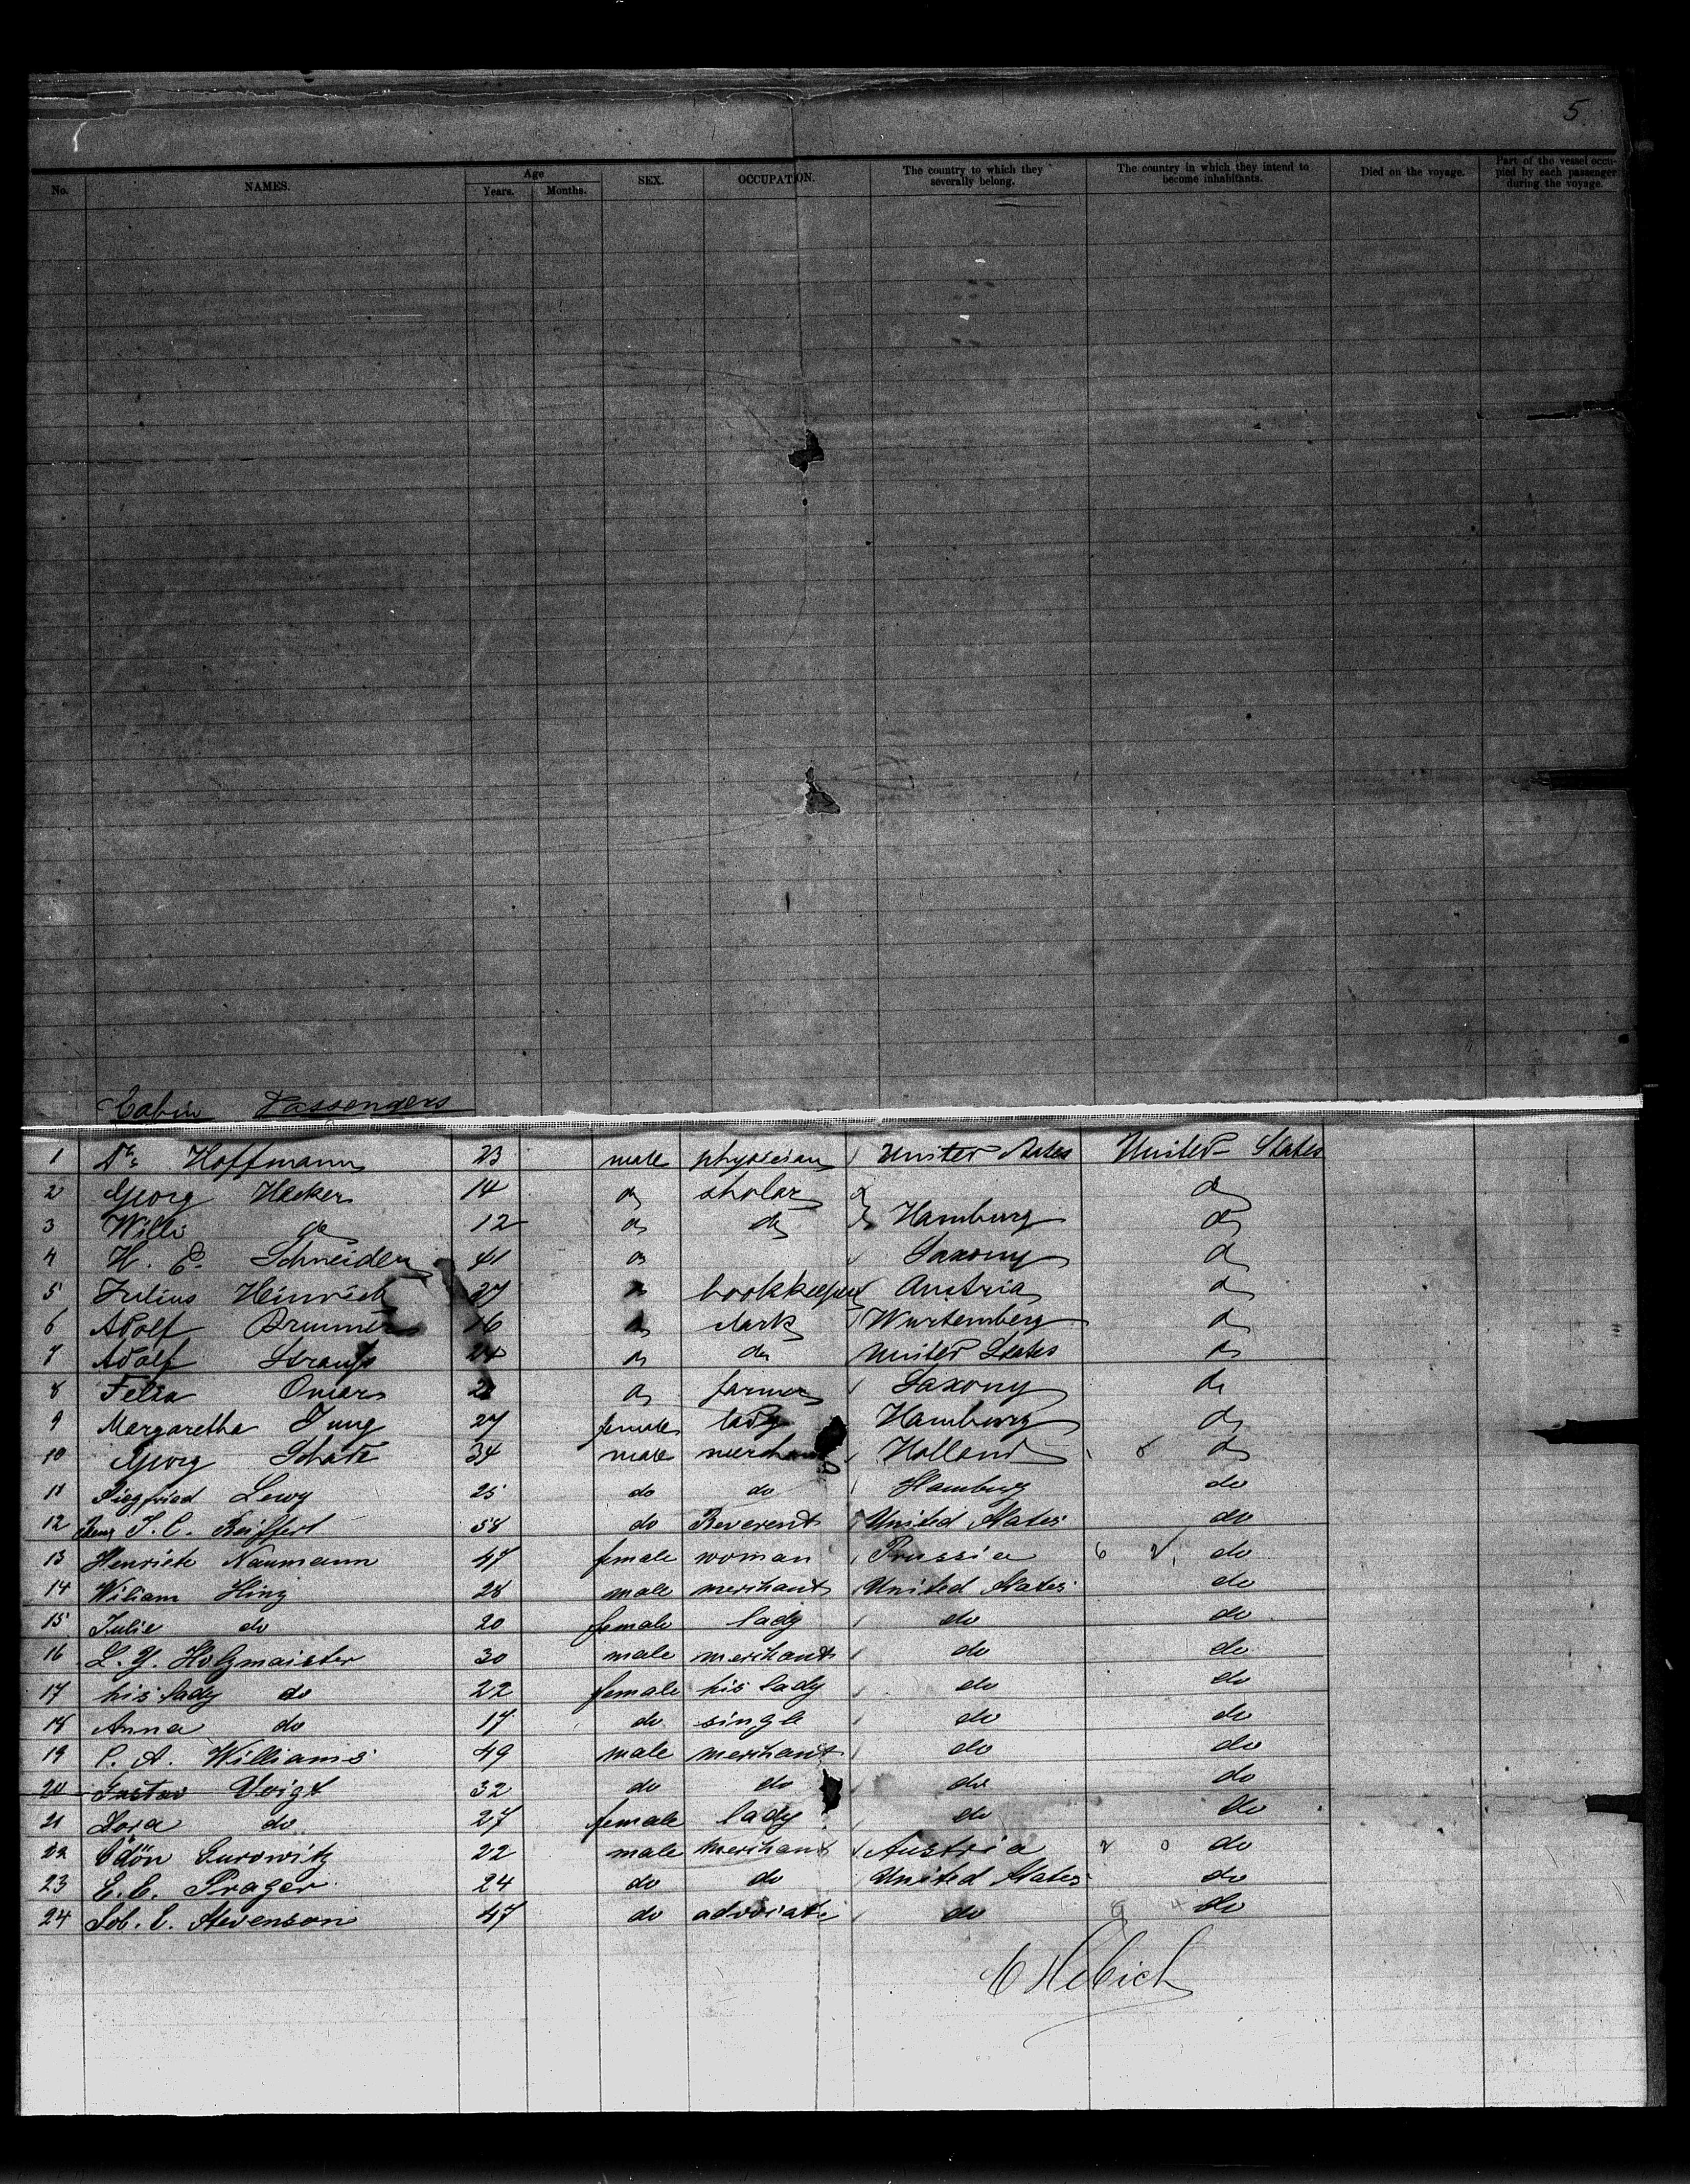 5.
No. NAMES. Age Years. Months. SEX. OCCUPATION. The country to which they severally belong. The country in which they intend to become inhabitants. Died on the voyage. Part of the vessel occupied by each passenger during the voyage.
Cabin Passengers
1 Dr. Hoffmann 23 male physician United States United States
2 Georg Hecker 14 do scholar do
3 Willi do 12 do do Hamburg do
4 H. E. Schneider 41 do Saxony do
5 Julius Heinrich 27 do bookkeeper Austria do
6 Adolf Brummer 16 do clark Wurtemberg do
7 Adolf Strauss 24 do do United States do
8 Felix Omer do farmer Saxony do
9 Margaretha Jung 27 female lady Hamburg do
10 Georg Schatz 34 male merch Holland do
11 Siegfried Lewy 25 do do Hamburg do
12 J. C. Seiffert 58 do Reverent United States do
13 Henriete Naumann 47 female woman Prussia 6 2, do
14 Wiliam Hinz 28 male merchant United States do
15 Julie do 20 female lady do do
16 L. Y. Holzmaister 30 male merchant do do
17 his lady do 22 female his lady do do
18 Anna do 17 do single do do
19 C. A. Williams 49 male merchant do do
20 Gustav Voigt 32 do do do do
21 Dora do 27 female lady do do
22 Ödön Gurowitz 22 male merchant Austria 2 0 do
23 E. E. Prager 24 do do United States do
24 Job. E. Stevenson 47 do advocate do 9 4 do
C Hebich